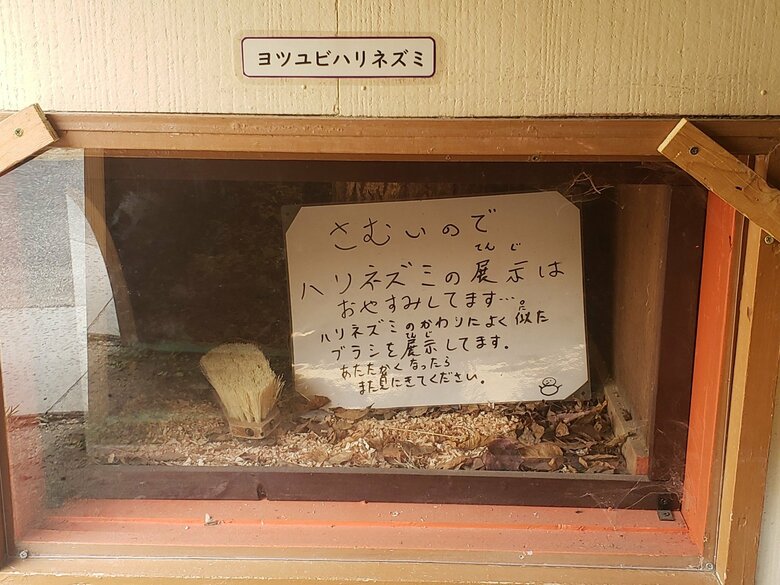 ヨツユビハリネズミ
さむいので
てんじ
ハリネズミの展示は
おやすみしてます…
に
ハリネズミのかわりによく似た
てんじ
ブラシを展示してます。
あたたかくなったら
また見にきてください。